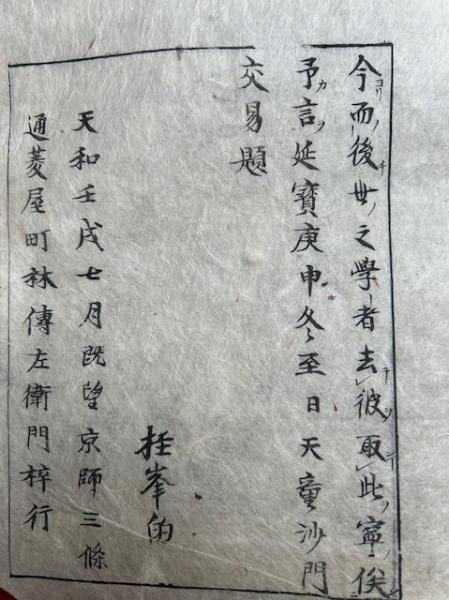 今而後世之學者去彼取此寧俟
予言延寶庚申冬至日天童沙門
交易題
峯
天和壬戌七月既望京師三條
通菱屋町林傳左衛門梓行